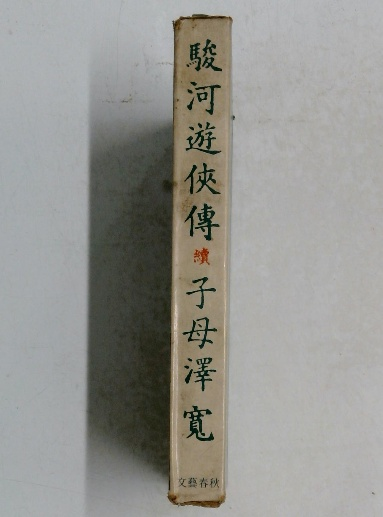 駿河遊俠傳
續
子母澤寛
文藝春秋